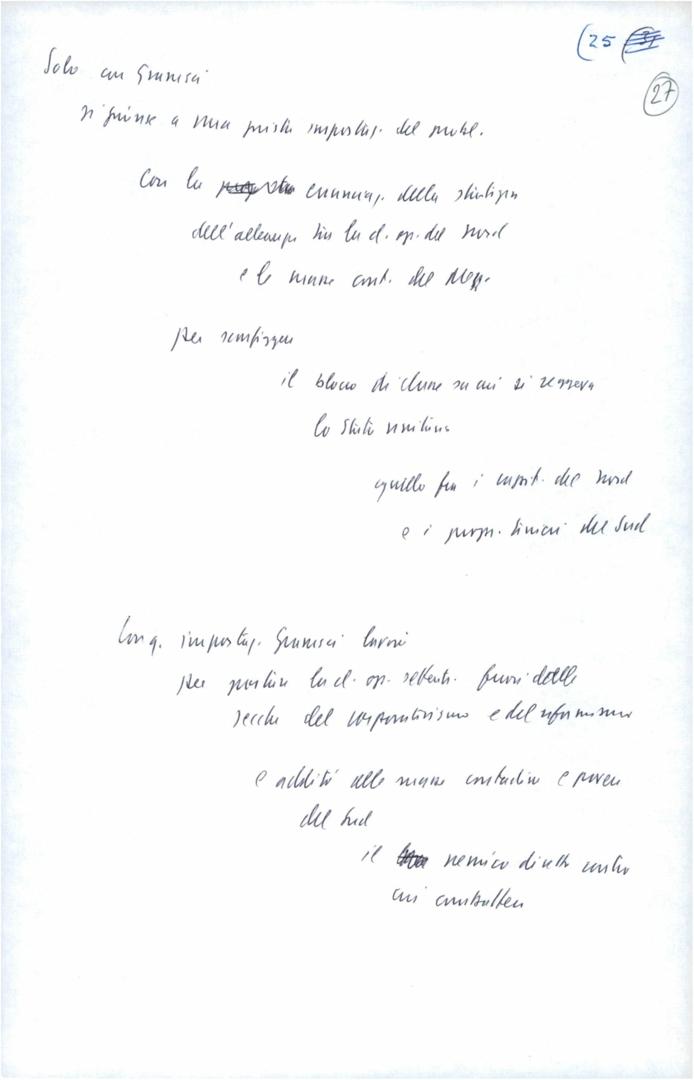 (25
27
Solo con Gramsci
si giunse a una giusta impostaz. del probl.
Con la enunciaz. della strategia
dell'alleanza tra la cl. op. del Nord
e le masse cont. del Mezz.
per sconfiggere
il blocco di classe su cui si reggeva
lo Stato unitario
quello fra i capit. del Nord
e i propr. terrieri del Sud
Con q. impostaz. Gramsci lavorò
per portare la cl. op. settentr. fuori dalle
secche del corporativismo e del riformismo
e additò alle masse contadine e povere
del Sud
il nemico diretto contro
cui combattere